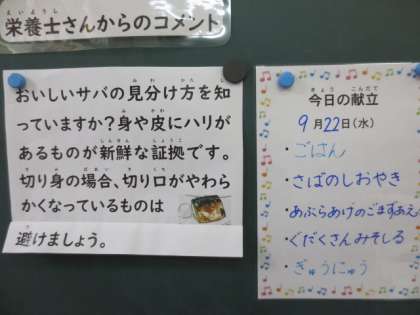 栄養士さんからのコメント
おいしいサバの見分け方を知
っていますか？身や皮にハリが
あるものが新鮮な証拠です。
切り身の場合、切り口がやわら
かくなっているものは
避けましょう。
今日の献立
9月22日(水)
・ごはん
・さばのしおやき
・あぶらあげのごまずあえ
・ぐだくさんみそしる
・ぎゅうにゅう